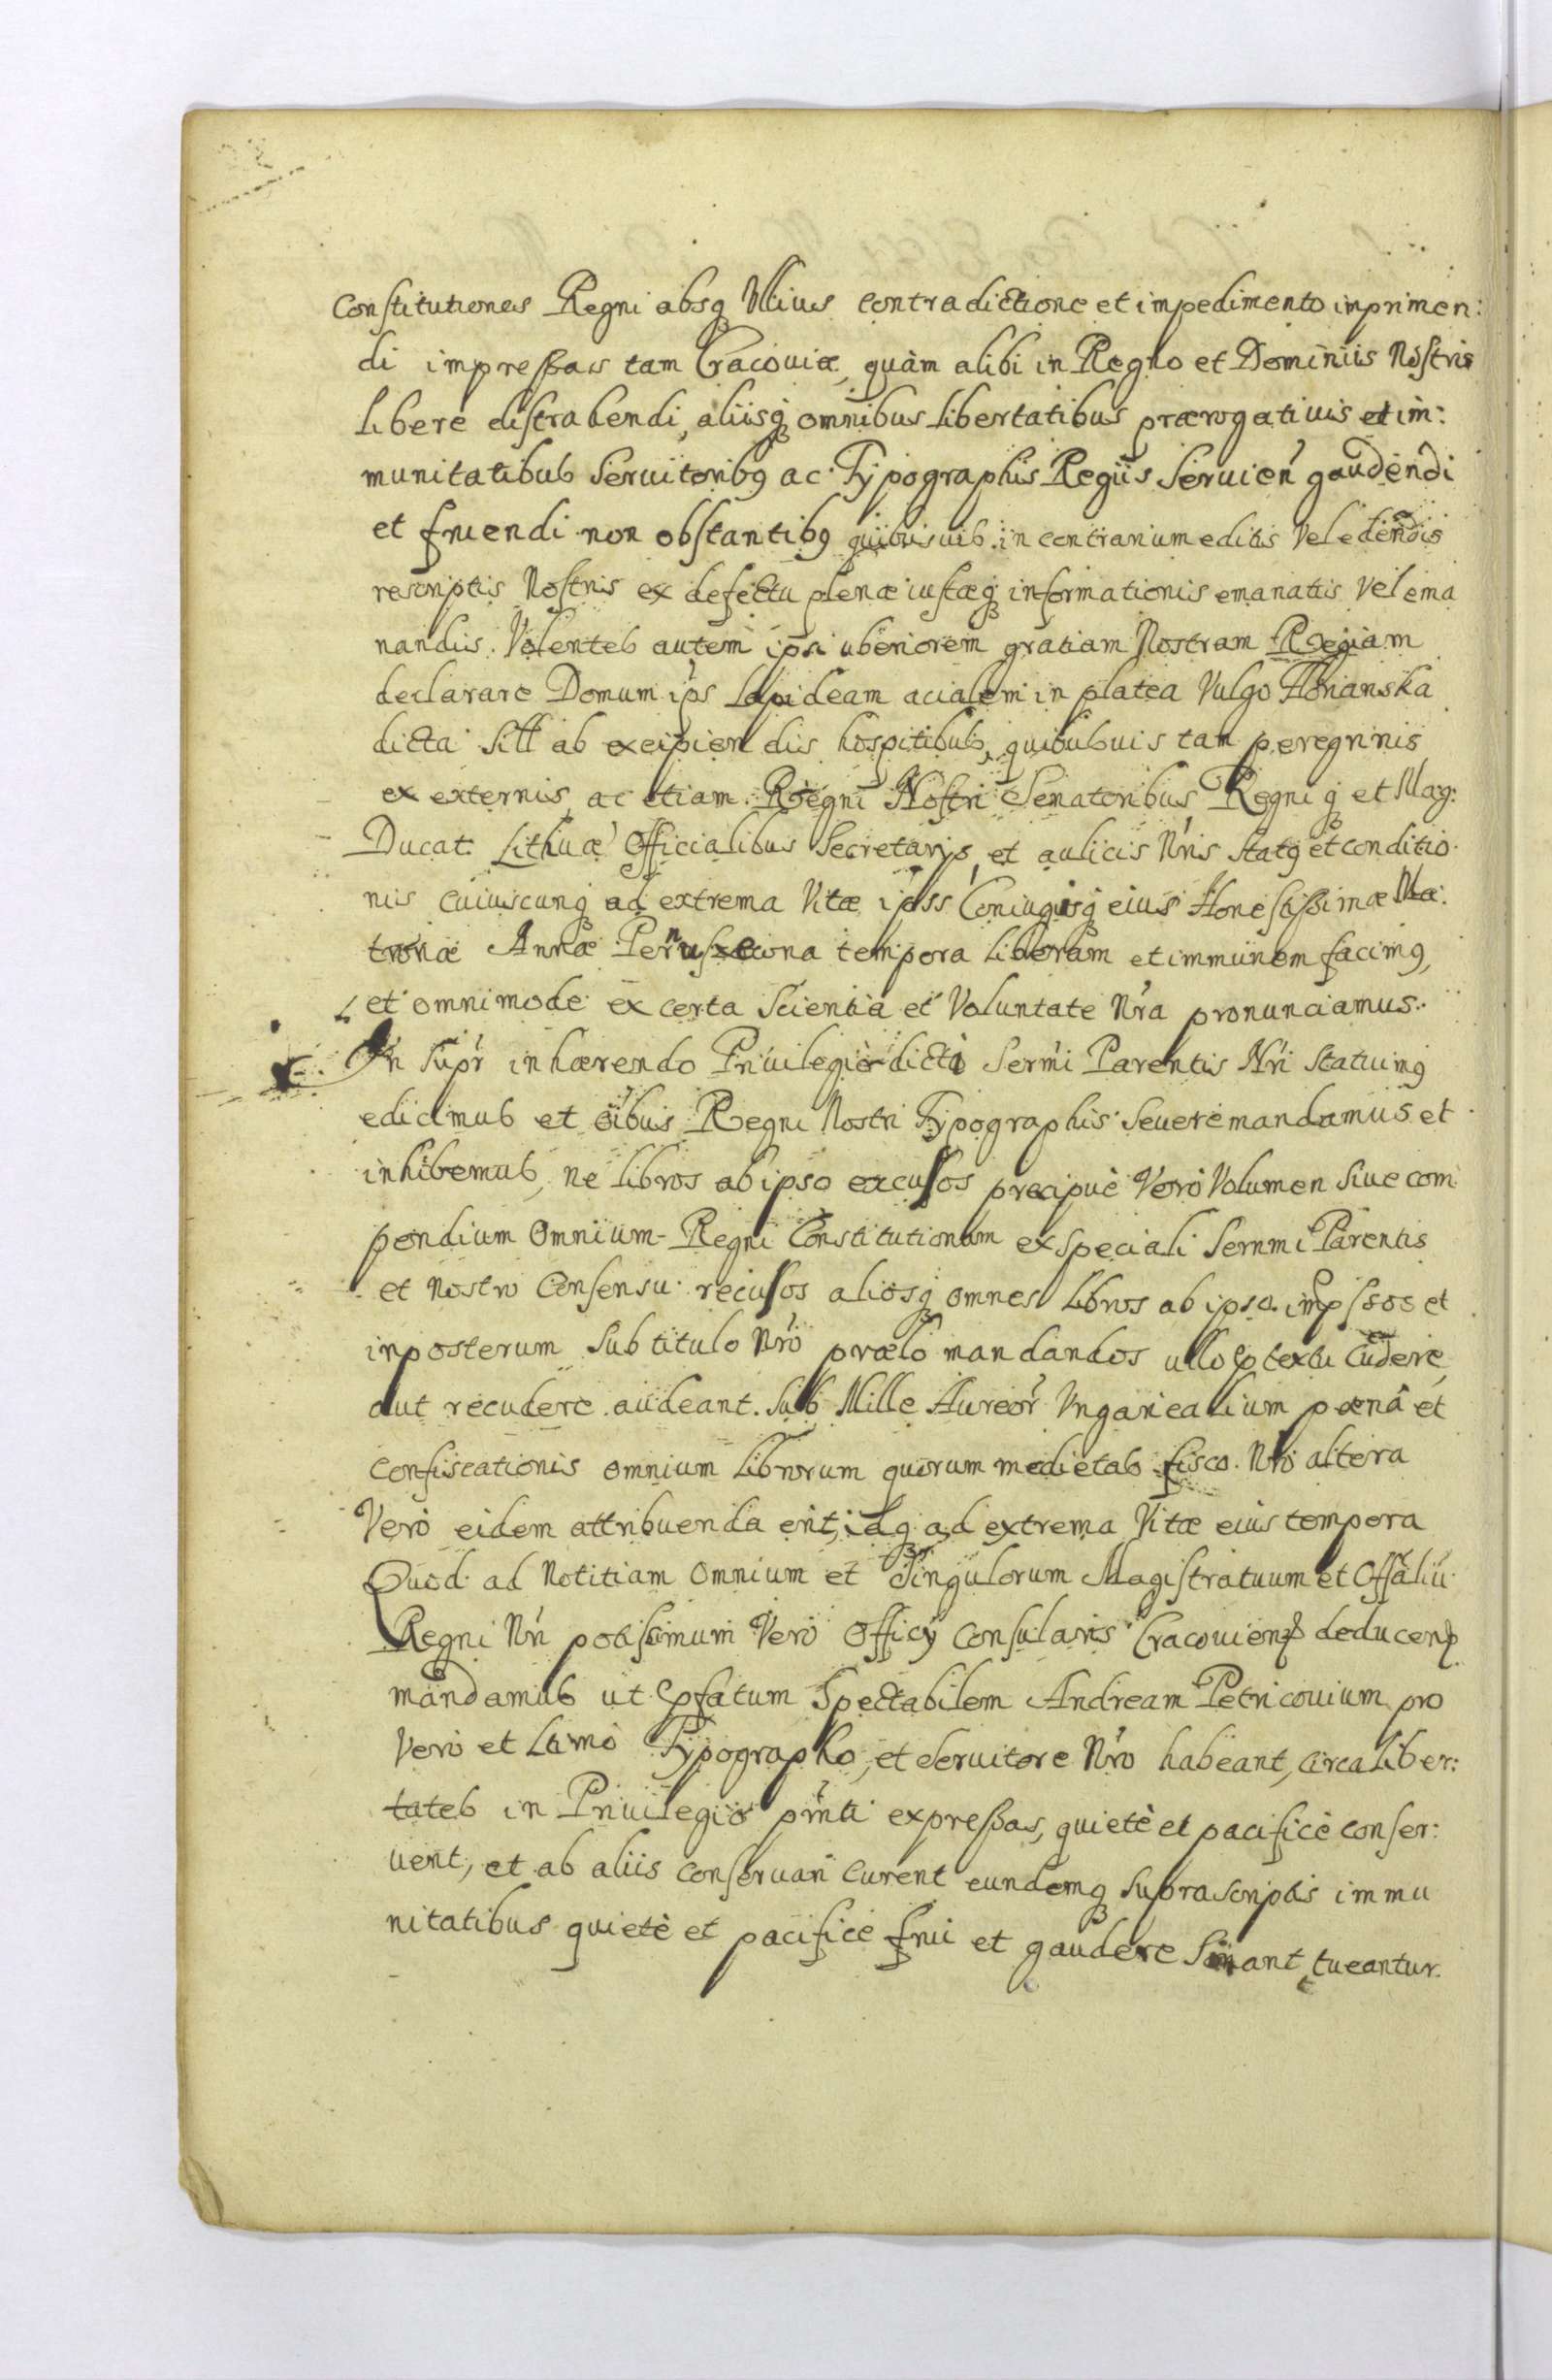 Constitutiones Regni absq Ullius contradictione et impedimento imprimen:
di impressas tam Cracoviæ, quàm alibi in Regno et Dominiis Nostris
Libere distrahendi, aliisq omnibus libertatibus prærogativis et im:
munitatibus Servitorib9 ac Typographis Regiis Servien gaudendi
et fruendi non obstantib9 quibusvis in contrarium editis Vel edendis
rescriptis Nostris ex defectu plenæ iustæq informationis emanatis Vel ema
nandis. Volentes autem ipsi uberiorem gratiam Nostram Regiam
declarare Domum ips Lapideam acialem in platea Vulgo Florianska
dicta Sitt ab excipien dis hospitibus, quibusvis tam peregrinis
ex externis ac etiam Regni Nostri Senatoribus Regni q et Mag:
Ducat Lithuæ Officialibus Secretarijs, et aulicis Nris Stat9 et conditio
nis cuiuscunq ad extrema Vitæ ipss Coniugisq eius Honestissimæ Ma:
tronæ Annæ tempora Liberam et immunem facim9,
et omnimode ex certa Scientia et Voluntate Nra pronunciamus.
In Supr inhærendo Privilegio dicti Sermi Parentis Nri Statuim9
edicimus et oibus Regni Nostri Typographis Severe mandamus et
inhibemus, ne libros ab ipso excusos precipuè Vero Volumen Sive com
pendium Omnium Regni Constitutionum ex Speciali Sernmi Parentis
et Nostro Consensu recusos aliosq omnes Libros ab ipso impssos et
inposterum Sub titulo Nro prælo mandandos ullo ptextu Cudere,
aut recudere audeant. Sub Mille Aureor Ungaricalium poenâ et
Confiscationis omnium Librorum quorum medietas fisco Nro altera
Vero eidem attribuenda erit, idq ad extrema Vitæ eius tempora
Quod ad Notitiam Omnium et Singulorum Magistratuum et Offaliu
Regni Nri potissimum Vero Officÿ Consularis Cracovien deducen
mandamus ut pfatum Spectabilem Andream Petricovium pro
Vero et Ltimo Typographo, et Servitore Nro habeant, circa liber:
tates in Privilegio pnti expressas, quietè et pacificè conser:
vent, et ab aliis conservari Curent eundemq Suprascriptis immu
nitatibus quietè et pacificè frui et gaudere Sinant, tueantur.